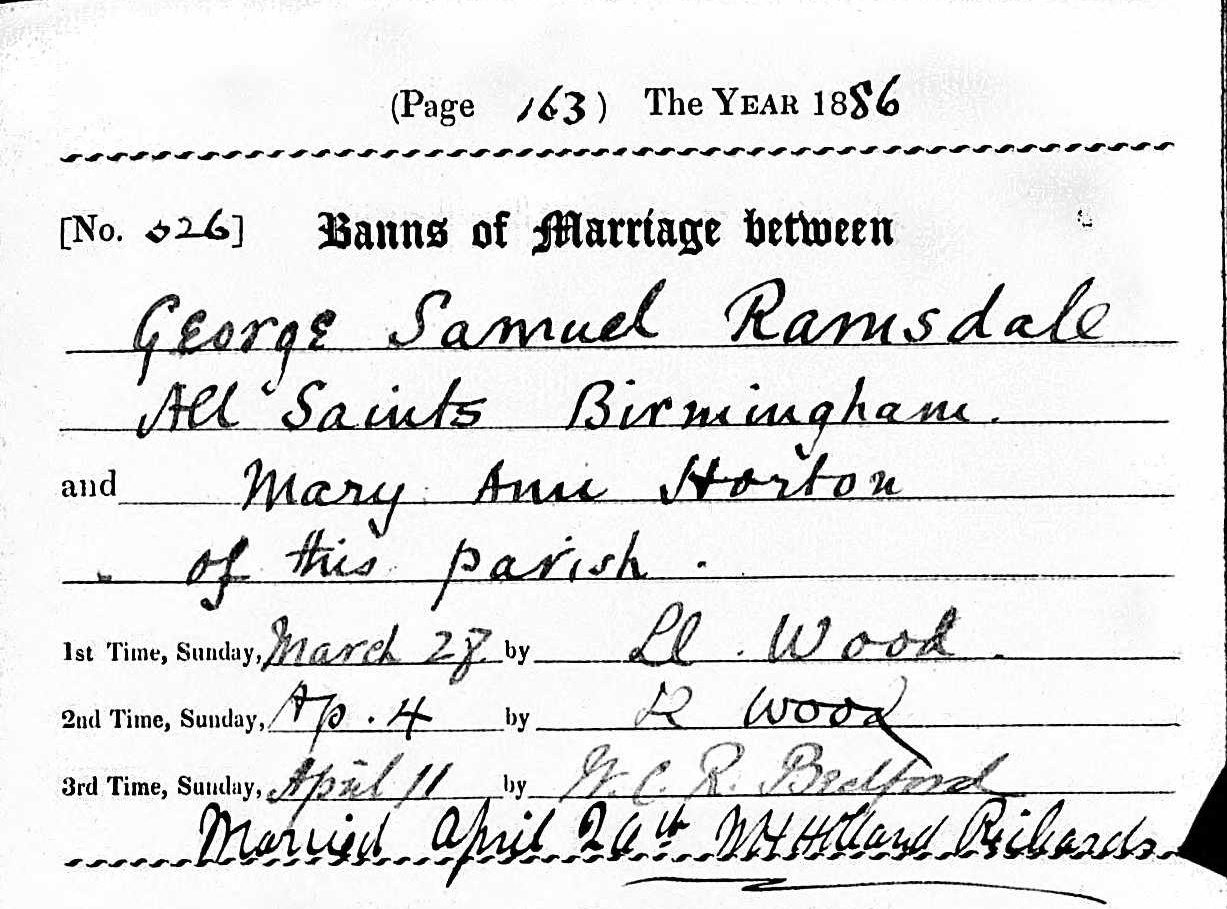 (Page 163) The YEAR 1886
[No. 526] Banns of Marriage between
George Samuel Ramsdale
All Saints Birmingham.
and Mary Ann Horton
of this parish.
1st Time, Sunday, March 28 by Ll. Wood.
2nd Time, Sunday, Ap. 4 by Wood
3rd Time, Sunday, April 11 by W. C. R. Bedford
Married April 26th Holland Richards